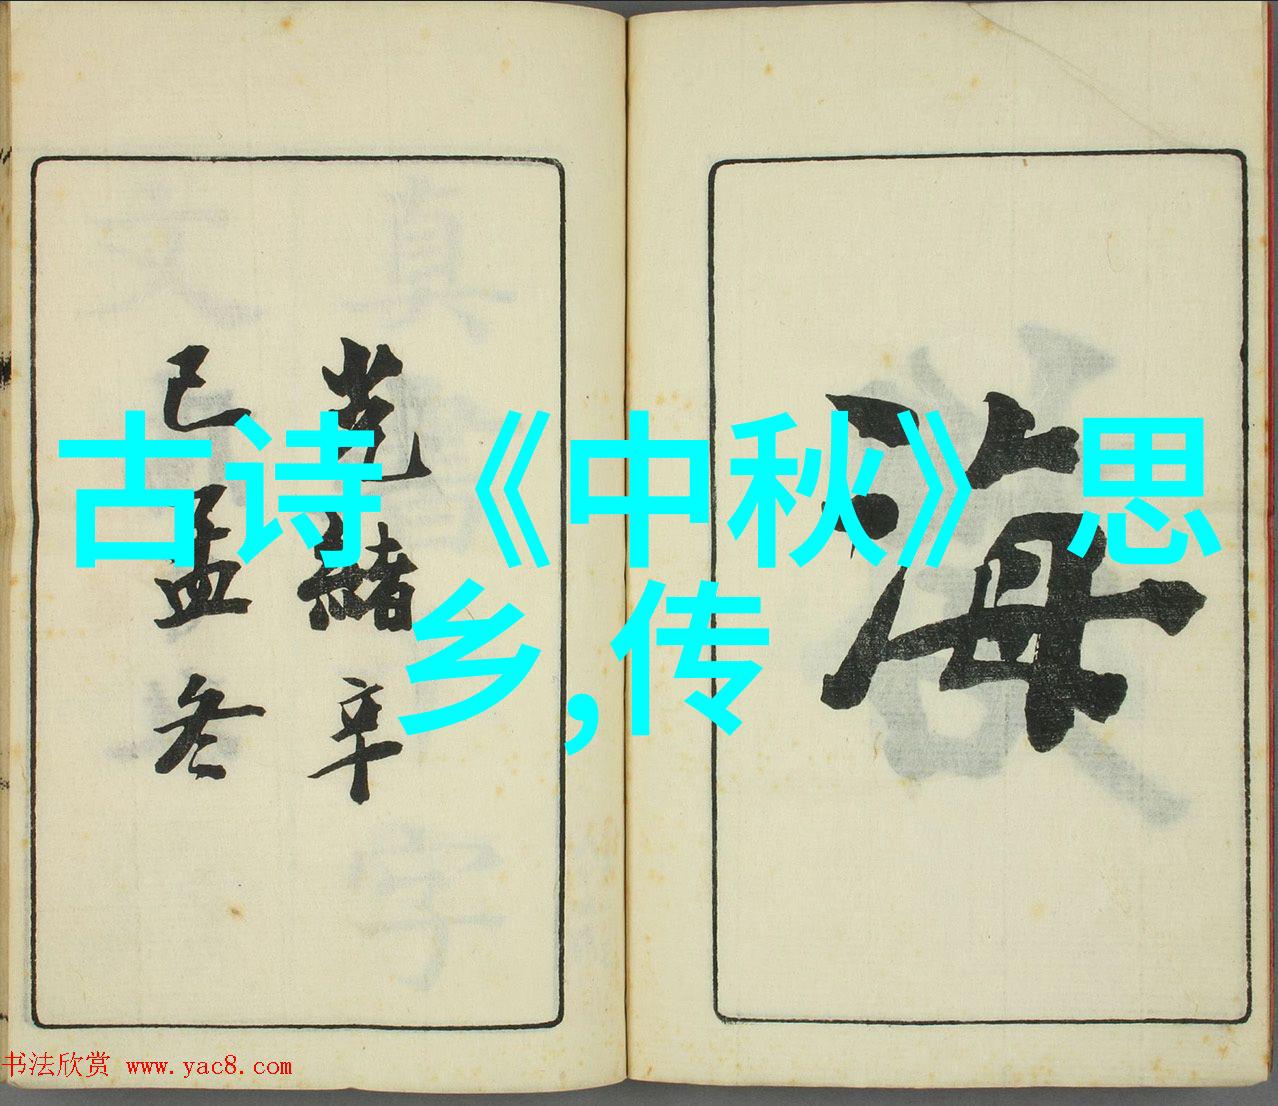 古诗《中秋》思
乡,传
海
光緒辛
巳孟冬
书法欣赏 www.yac8.com